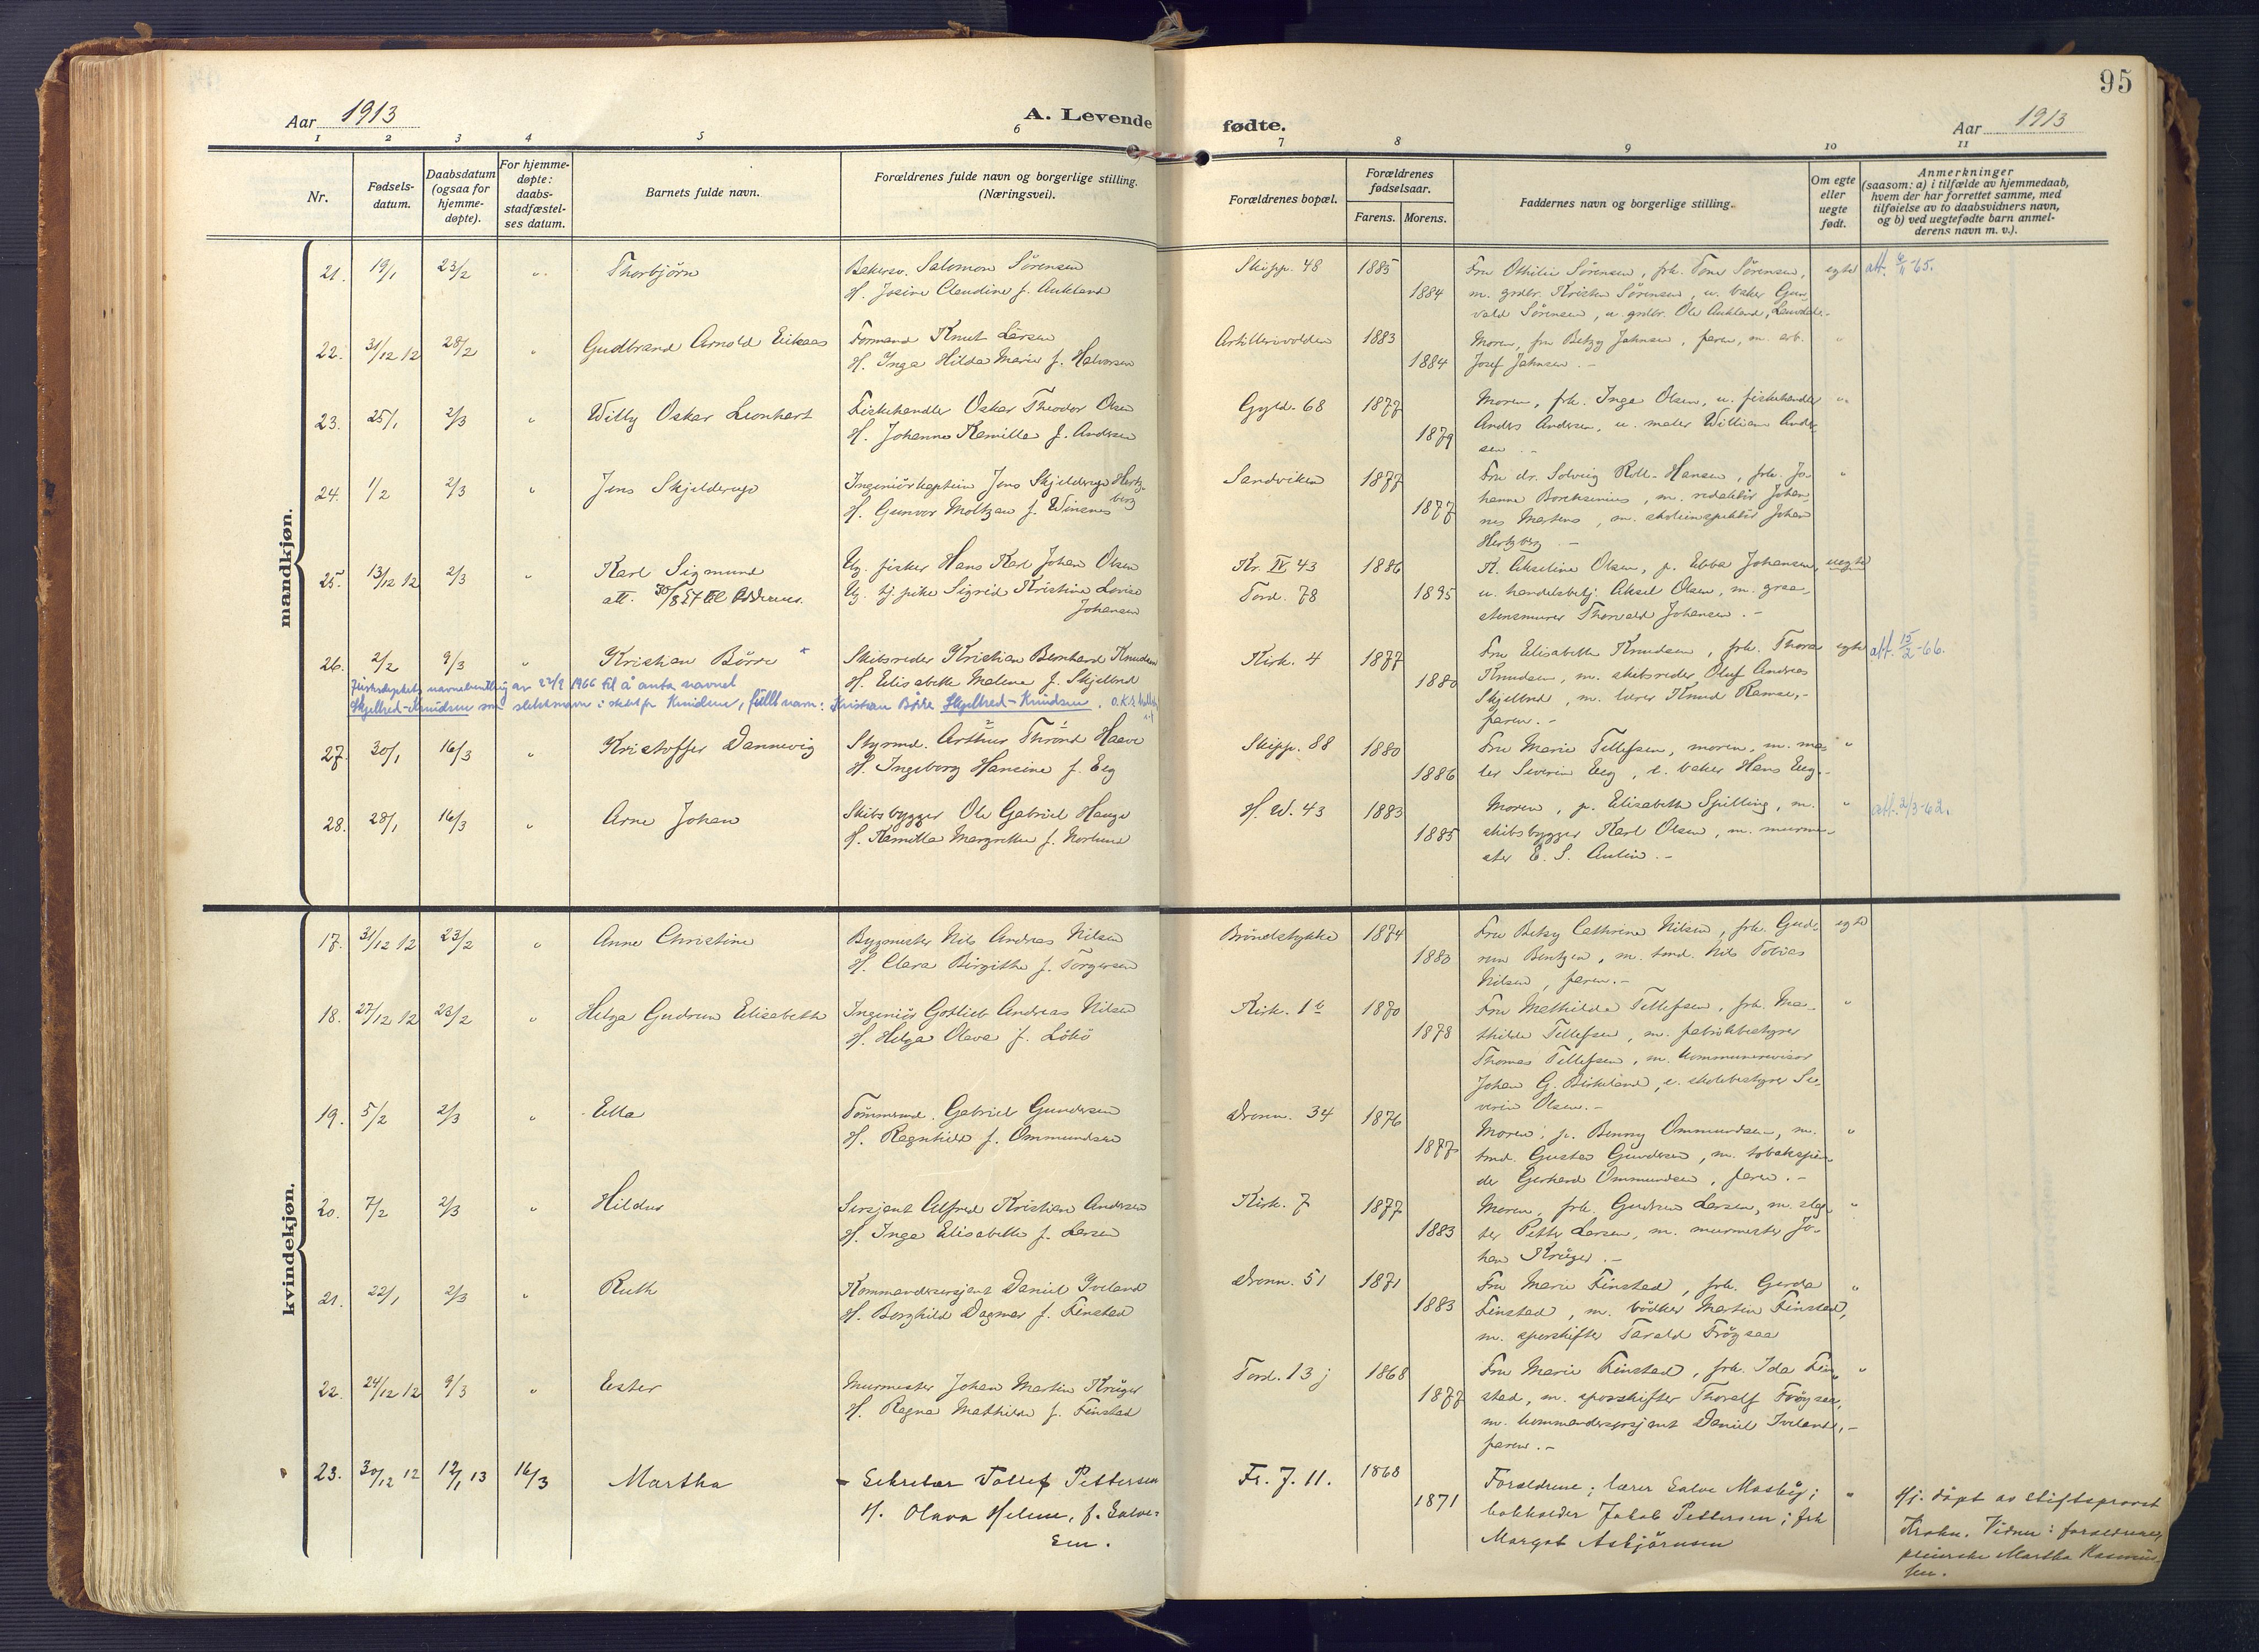 95
Aar 1913
A. Levende
fødte.
Aar 1913
1 2 3 4 5 6 7 8 9 10 11
Nr.
Fødsels-
datum.
Daabsdatum
(ogsaa for
hjemme-
døpte).
For hjemme-
døpte:
daabs-
stadfæstel-
ses datum.
Barnets fulde navn.
Forældrenes fulde navn og borgerlige stilling.
(Næringsvei).
Forældrenes bopæl.
Forældrenes
fødselsaar.
Farens. Morens.
Faddernes navn og borgerlige stilling.
Om egte
eller
uegte
født.
Anmerkninger
(saasom: a) i tilfælde av hjemmedaab,
hvem der har forrettet samme, med
tilføielse av to daabsvidners navn,
og b) ved uegtefødte barn anmel-
derens navn m. v.).
mandkjøn.
21. 19/1 23/2 " Thorbjörn Bakersv. Salomon Sörensen Skipp. 48 1885 Fru Othilie Sörensen, frk. Tone Sörensen, egte att. 6/11-65.
H. Josine Claudine f. Aukland 1884 m. grdbr. Kristen Sörensen, u. baker Gun-
vald Sörensen, u. grdbr. Ole Aukland,
22. 31/12 12 28/2 " Gudbrand Arnold Eikaas Formand Knut Larsen Artillerivolden 1883 Moren, fru Betzy Jahnsen, faren, m. arb. "
H. Inga Hilda Marie f. Halvorsen 1884 Josef Jahnsen. -
23. 25/1 2/3 " Willy Oskar Leonhart Fiskehandler Oskar Theodor Olsen Gyld. 68 1877 Moren, frk. Inga Olsen, u. fiskehandler "
H. Johanne Kamilla f. Andersen 1879 Anders Andersen, u. maler William Ander-
sen. -
24. 1/2 2/3 " Jens Skjelderup Ingeniörkaptein Jens Skjelderup Hertz- Sandviken 1877 Fru dr. Solveig Roll-Hansen, frk. Jo- "
berg
H. Gunvor Moltzau f. Winsnes 1877 hanne Borchsenius, m. redaktör Johan-
nes Martens, m. skoleinspektör Johan
Hertzberg. -
25. 13/12 12 2/3 " Karl Sigmund Ug. fisker Hans Karl Johan Olsen Kr. IV 43 1886 K. Akseline Olsen, p. Ebba Johansen, uegte
att. 30/8 27 til Oddernes. Ug. tj. pike Sigrid Kristine Lovise Tord. 78 1895 u. handelsbetj. Aksel Olsen, m. graa-
Johansen stensmurer Thorvald Johansen. -
26. 2/2 9/3 " Kristian Börre * Skibsreder Kristian Bernhard Knudsen Kirk. 4 1877 Fru Elisabeth Knudsen, frk. Thora egte att. 15/2-66.
H. Elisabeth Malene f. Skjelbred 1880 Knudsen, m. skibsreder Oluf Andreas
Skjelbred, m. lærer Knud Ramse, -
faren. -
navnebevilling av 22/2 1966 til å anta navnet
Skjelbred-Knudsen som slektsnavn i stedet for Knudsen, fullt navn: Kristian Börre Skjelbred-Knudsen.
27. 30/1 16/3 " Kristoffer Dannevig Styrmd. Arthur Thrond Haave Skipp. 88 1880 Fru Marie Tellefsen, moren, m. ma- "
H. Ingeborg Hansine f. Eeg 1886 ler Severin Eeg, u. baker Hans Eeg. -
28. 28/1 16/3 " Arne Johan Skibsbygger Ole Gabriel Hauge H. W. 43 1883 Moren, p. Elisabeth Spilling, m. " att. 2/3-62.
H. Kamilla Margrethe f. Norlund 1885 skibsbygger Karl Olsen, m. murme-
ster E. S. Aulin. -
kvindekjøn.
17. 31/12 12 23/2 " Anne Christine Bygmester Nils Andreas Nilsen Bröndstykke 1874 Fru Betzy Cathrine Nilsen, frk. Gud- egte
H. Clara Birgithe f. Torgersen 1880 run Bentzen, m. tmd. Nils Tobias
Nilsen, faren. -
18. 27/12 12 23/2 " Helga Gudrun Elisabeth Ingeniör Gotlieb Andreas Nilsen Kirk. 1 b 1870 Fru Mathilde Tellefsen, frk. Ma- "
H. Helga Olava f. Lökö 1878 thilde Tellefsen, m. fabrikbestyrer
Thomas Tellefsen, m. kommunerevisor
Johan G. Birkeland, u. skolebestyrer Se-
verin Olsen. -
19. 5/2 2/3 " Ella Tömmermd. Gabriel Gundersen Dronn. 34 1876 Moren, p. Benny Ommundsen, m. "
H. Ragnhild f. Ommundsen 1877 tmd. Gustav Gundersen, m. tobakspin-
der Gerhard Ommundsen, faren. -
20. 7/2 2/3 " Hildur Sersjant Alfred Kristian Andersen Kirk. 7 1877 Moren, frk. Gudrun Larsen, m. slag- "
H. Inga Elisabeth f. Larsen 1883 ter Petter Larsen, m. murmester Jo-
han Krüger. -
21. 22/1 2/3 " Ruth Kommandersersjant Daniel Iveland Dronn. 51 1871 Fru Marie Finstad, frk. Gerda "
H. Borghild Dagmar f. Finstad 1883 Finstad, m. bödker Martin Finstad,
m. sporskifter Tarald Fröysaa
22. 24/12 12 9/3 " Ester Murmester Johan Martin Krüger Tord. 13 j 1868 Fru Marie Finstad, frk. Ida Fin- "
H. Ragna Mathilde f. Finstad 1877 stad, m. sporskifter Thoralf Fröysaa,
m. kommandersersjant Daniel Iveland, -
faren. -
23. 30/12 12 12/1 13 16/3 Martha Sekretær Tollef Pettersen Fr. J. 11. 1868 Forældrene; lærer Salve Mosbÿ; " Hj. döpt av Stiftsprovst
H. Olava Helene, f. Salve- 1871 bokholder Jakob Pettersen; frk Krohn. Vidner: forældrene,
sen. Margot Asbjörnsen pleierske Martha Rasmus-
sen.